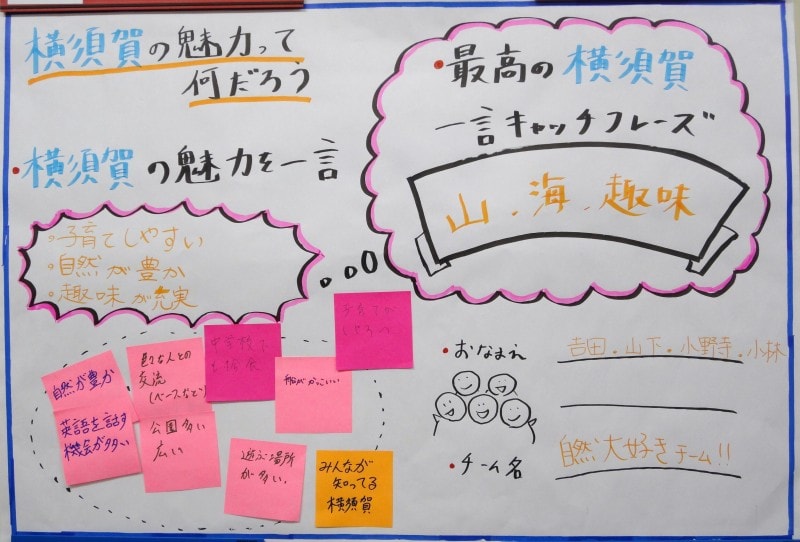 横須賀の魅力って
何だろう
・横須賀の魅力を一言
・子育てしやすい
・自然が豊か
・趣味が充実
・最高の横須賀
一言キャッチフレーズ
山、海、趣味
自然が豊か
英語を話す
機会が多い
交流
(ベースなど)
公園多い
広い
船がかっこいい
遊ぶ場所
が多い。
みんなが
知ってる
横須賀
・おなまえ
吉田・山下・小野寺・小林
・チーム名
自然大好きチーム!!